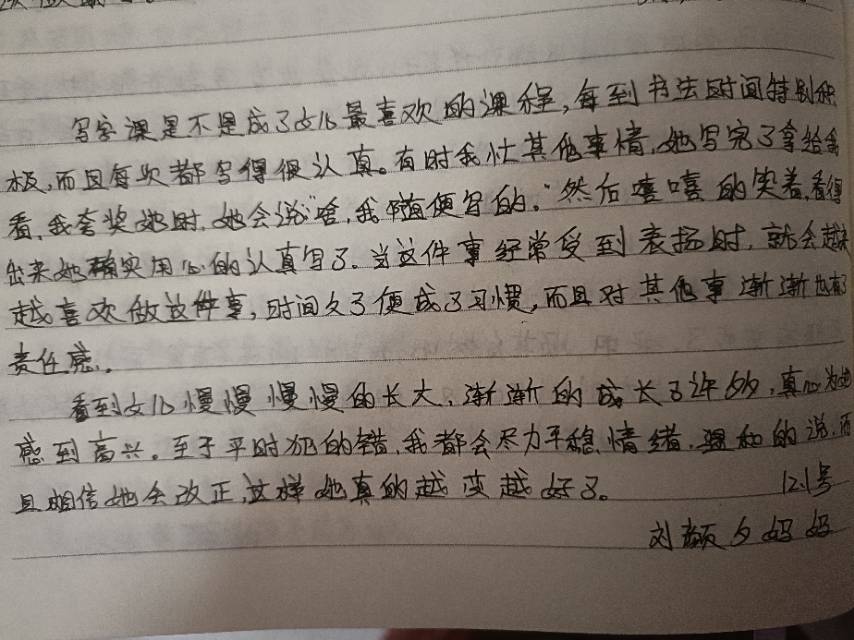 写字课是不是成了女儿最喜欢的课程,每到书法时间特别积
极,而且每次都写得很认真。有时我忙其他事情,她写完了拿给我
看,我夸奖她时,她会说"啥,我随便写的。"然后嘻嘻的笑着,看得
出来她确实用心的认真写了。当这件事经常受到表扬时,就会越来
越喜欢做这件事,时间久了便成了习惯,而且对其他事渐渐也有了
责任感。
看到女儿慢慢慢慢的长大,渐渐的成长了许多,真心为她
感到高兴。至于平时犯的错,我都会尽力平稳情绪,温和的说,而
且相信她会改正,这样她真的越变越好了。 12.1号
刘颜夕妈妈